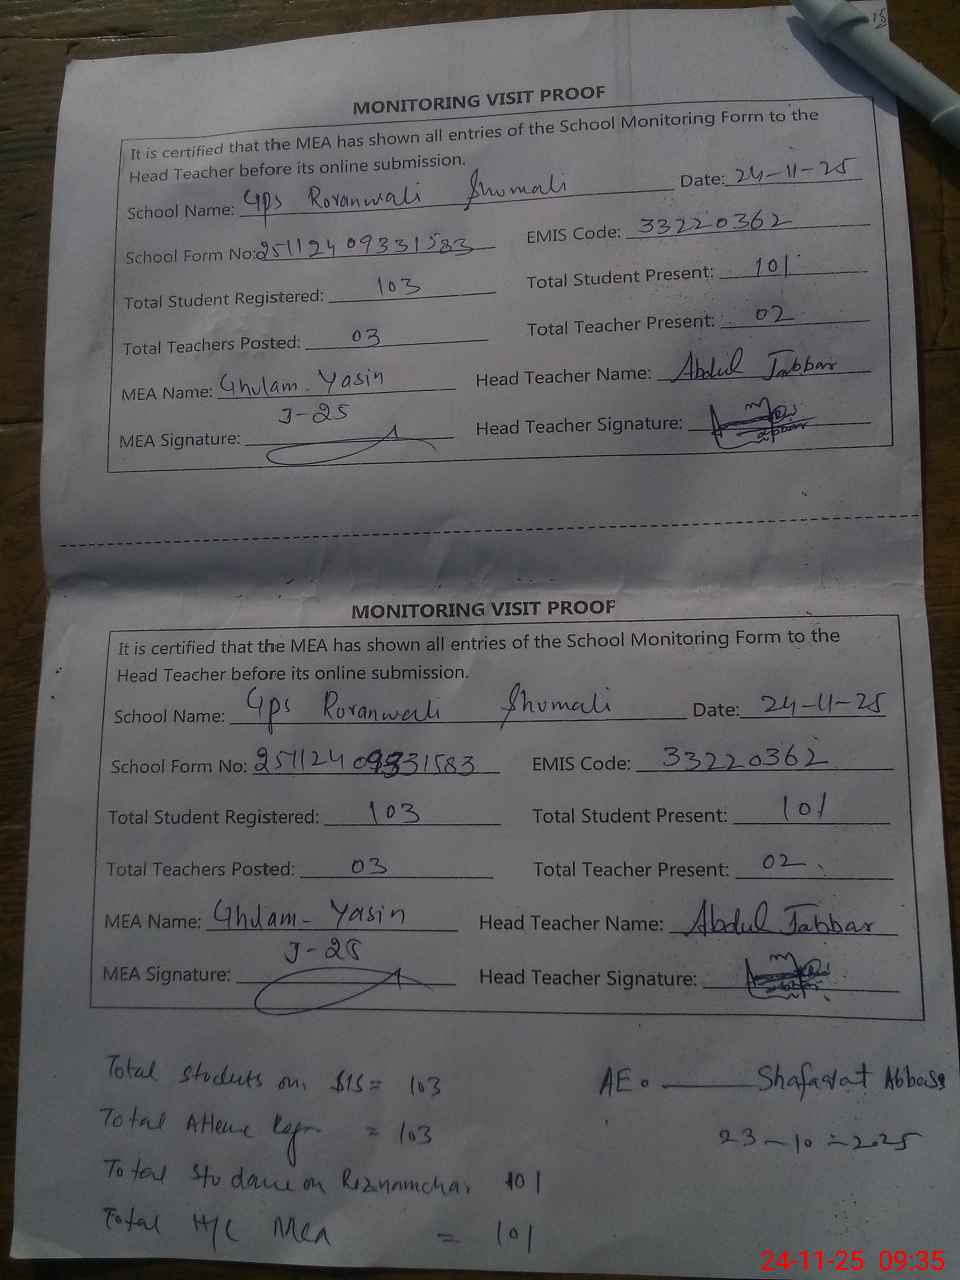 MONITORING VISIT PROOF
It is certified that the MEA has shown all entries of the School Monitoring Form to the
Head Teacher before its online submission.
School Name: Gps Roranwali Shumali Date: 24-11-25
School Form No: 25112409331583 EMIS Code: 33220362
Total Student Registered: 103 Total Student Present: 101
Total Teachers Posted: 03 Total Teacher Present: 02
MEA Name: Ghulam-Yasin Head Teacher Name: Abdul Jabbar
J-25
MEA Signature: Head Teacher Signature:
MONITORING VISIT PROOF
It is certified that the MEA has shown all entries of the School Monitoring Form to the
Head Teacher before its online submission.
School Name: Gps Roranwali Shumali Date: 24-11-25
School Form No: 25112409331583 EMIS Code: 33220362
Total Student Registered: 103 Total Student Present: 101
Total Teachers Posted: 03 Total Teacher Present: 02
MEA Name: Ghulam-Yasin Head Teacher Name: Abdul Jabbar
J-25
MEA Signature: Head Teacher Signature:
Total Students on SIS = 103 AEo Shafaqat Abbas
Total = 103 23-10-2025
Total on Roznamcha 101
Total H/C Mea = 101
24-11-25 09:35